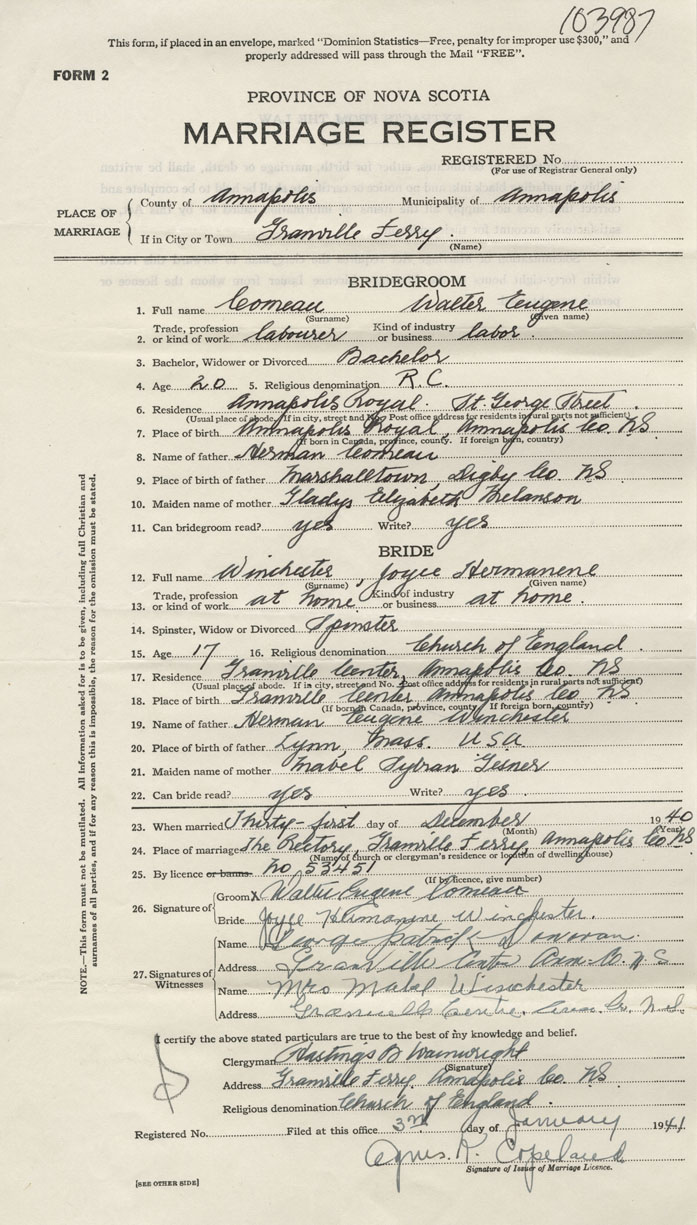 103987
This form, if placed in an envelope, marked "Dominion Statistics—Free, penalty for improper use $300," and
properly addressed will pass through the Mail "FREE".
FORM 2
PROVINCE OF NOVA SCOTIA
MARRIAGE REGISTER
REGISTERED No.
(For use of Registrar General only)
PLACE OF MARRIAGE
County of Annapolis Municipality of Annapolis
If in City or Town Granville Ferry.
(Name)
BRIDEGROOM
1. Full name Comeau Walter Eugene
(Surname) (Given name)
2. Trade, profession or kind of work labourer Kind of industry or business labor.
3. Bachelor, Widower or Divorced Bachelor
4. Age 20 5. Religious denomination R.C.
6. Residence Annapolis Royal. St. George Street
(Usual place of abode. If in city, street and No. Post office address for residents in rural parts not sufficient)
7. Place of birth Annapolis Royal, Annapolis Co. NS
(If born in Canada, province, county. If foreign born, country)
8. Name of father Herman Comeau
9. Place of birth of father Marshalltown, Digby Co. NS
10. Maiden name of mother Gladys Elizabeth Melanson
11. Can bridegroom read? yes Write? yes
BRIDE
12. Full name Winchester, Joyce Hermanene
(Surname) (Given name)
13. Trade, profession or kind of work at home. Kind of industry or business at home.
14. Spinster, Widow or Divorced Spinster
15. Age 17 16. Religious denomination Church of England.
17. Residence Granville Center, Annapolis Co. NS
(Usual place of abode. If in city, street and No. Post office address for residents in rural parts not sufficient)
18. Place of birth Granville Center Annapolis Co. NS
(If born in Canada, province, county. If foreign born, country)
19. Name of father Herman Eugene Winchester
20. Place of birth of father Lynn, Mass. USA
21. Maiden name of mother Mabel Gesner
22. Can bride read? yes Write? yes.
23. When married Thirty-first day of December 1940
(Month) (Year)
24. Place of marriage The Rectory, Granville Ferry, Annapolis Co. NS
(Name of church or clergyman's residence or location of dwelling house)
25. By licence or banns. No 53451
(If by licence, give number)
26. Signature of
Groom X Walter Eugene Comeau
Bride Joyce Hermanine Winchester.
27. Signatures of Witnesses
Name George Patrick Donovan.
Address Granville Centre Ann. Co. N.S
Name Mrs Mabel Winchester
Address Granville Centre, Ann. Co. N.S.
I certify the above stated particulars are true to the best of my knowledge and belief.
Clergyman Hastings B Wainwright
(Signature)
Address Granville Ferry, Annapolis Co. NS
Religious denomination Church of England.
Registered No. Filed at this office 3rd day of January 1941
Agnes. K. Copeland
Signature of Issuer of Marriage Licence.
[SEE OTHER SIDE]
NOTE.—This form must not be mutilated. All information asked for is to be given, including full Christian and
surnames of all parties, and if for any reason this is impossible, the reason for the omission must be stated.